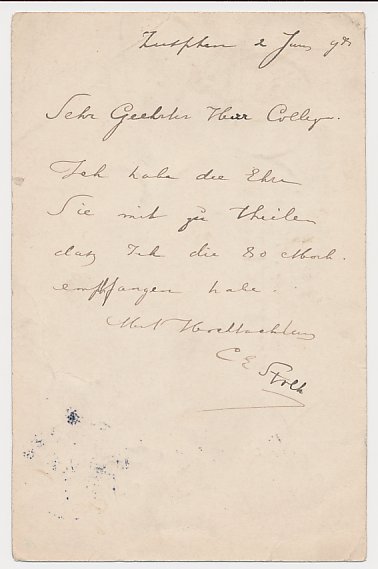 Zutphen 2 Juni
Sehr Geehrter Herr College.
Ich habe die Ehre
Sie mit zu theilen
dasz Ich die 80 Mark.
empfangen habe.
Mit Hochachtung
C E